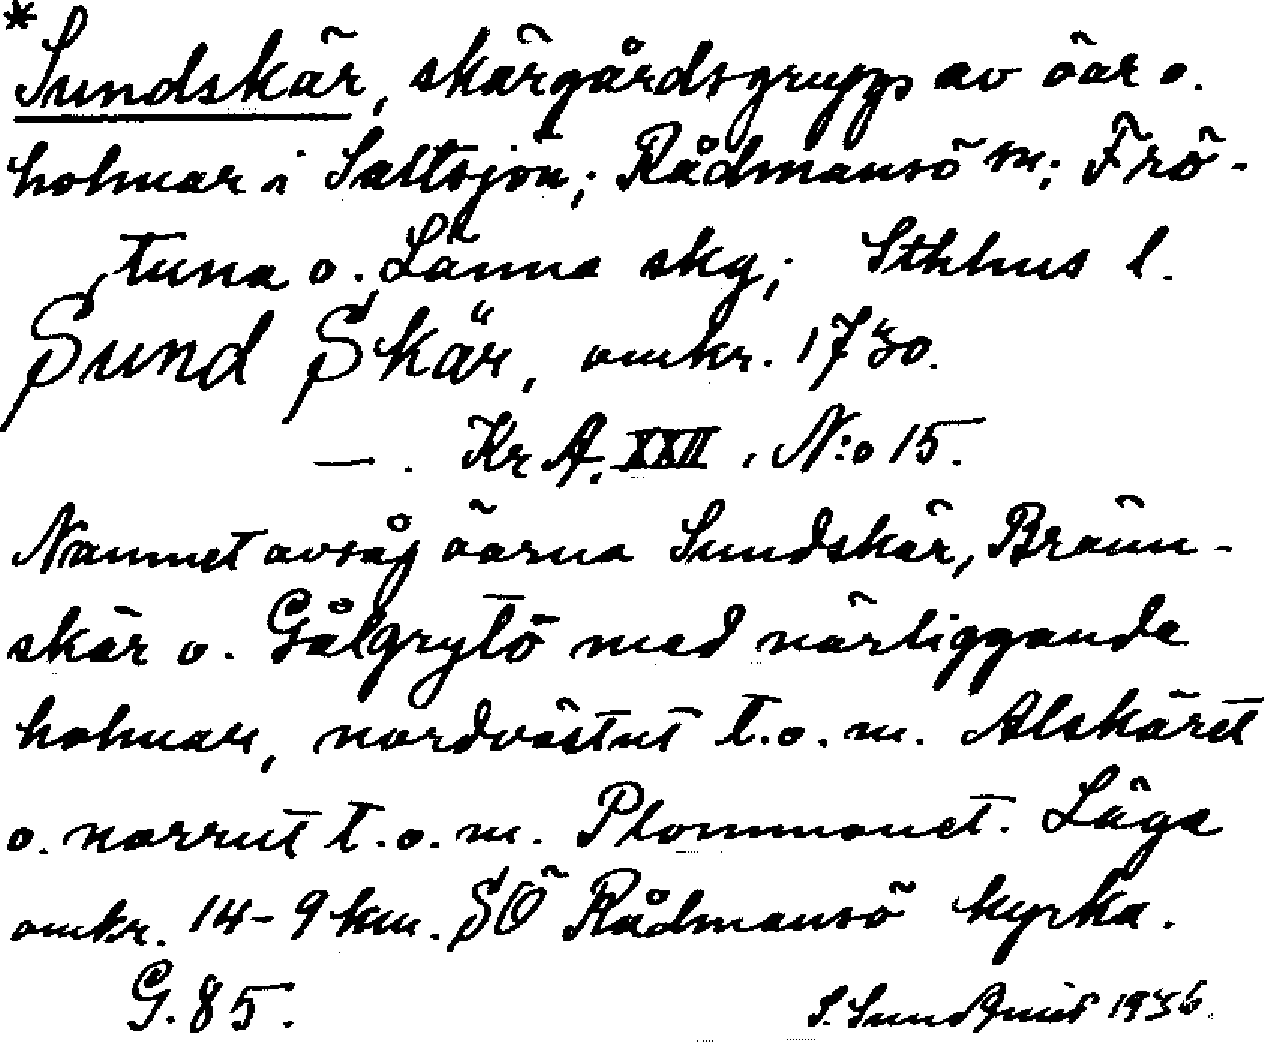 *Sundskär, skärgårdsgrupp av öar o.
holmar i Saltsjön; Rådmansö sn; Frö-
tuna o. Länna skg; Sthlms l.
Sund Skär, omkr. 1730.
— . Kr A. XXII, N:o 15.
Namnet avsåg öarna Sundskär, Brännskär
skär o. Gålgrytö med närliggande
holmar, nordvästut t.o.m. Alskäret
o. norrut t.o.m. Plommonet. Läge
omkr. 14-9 km. SÖ Rådmansö kyrka.
G. 85. S. Sundqvist 1936.